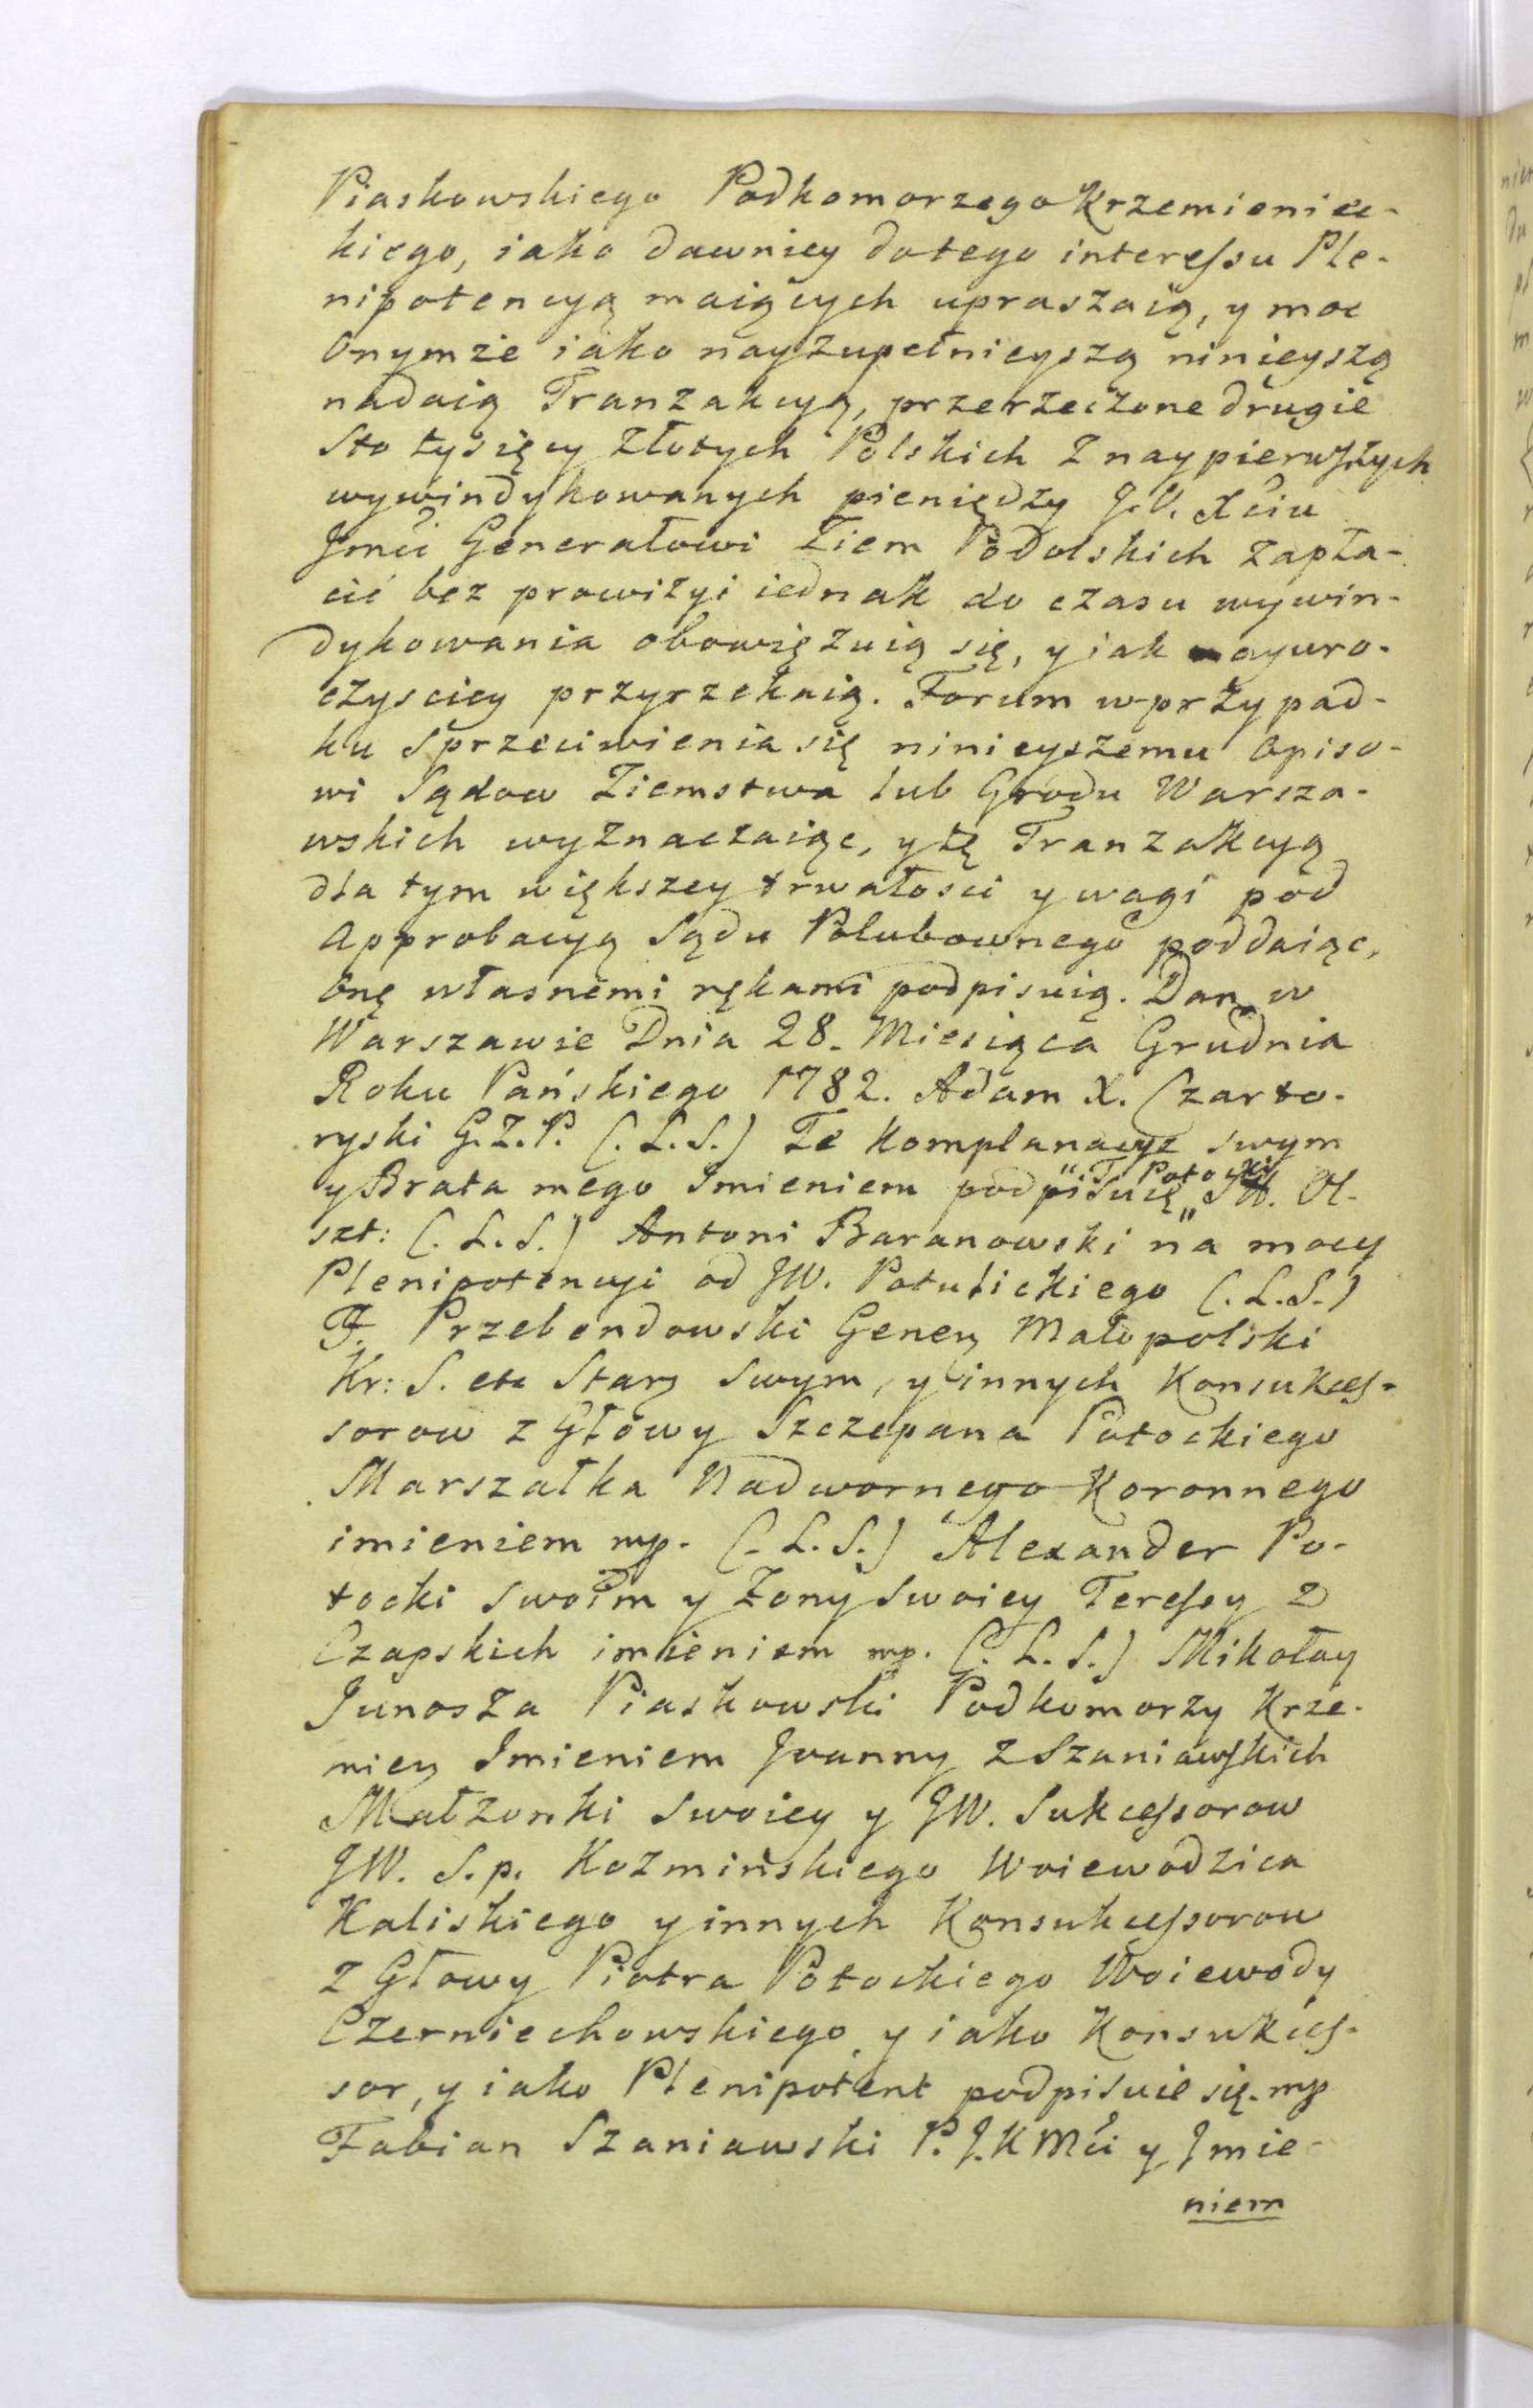 Piaskowskiego Podkomorzego Krzemieniec-
kiego, iako dawniey dotego interessu Ple-
nipotencyą maiących upraszaią, y moc
Onymże iako nayzupełnieyszą ninieyszą
nadaią Tranzakcyą, przerzeczone drugie
Sto tysięcy Złotych Polskich Znaypierwszych
wywindykowanych pieniędzy J.O. Xciu
Jmći Generałowi Ziem Podolskich zapła-
cić bez prowizyi iednak do czasu wywin-
dykowania obowięzuią się, y iak nayuro-
czysciey przyrzekaią. Forum wprzypad-
ku Sprzeciwienia się ninieyszemu Opiso-
wi Sądow Ziemstwa lub Grodu Warsza-
wskich wyznaczaiąc, y tę Tranzakcyą
dla tym większey trwałosci y wagi pod
Approbacyą Sądu Polubownego poddaiąc,
Onę własnemi rękami podpisuią. Dan w
Warszawie Dnia 28. Miesiąca Grudnia
Roku Pańskiego 1782. Adam X. Czarto-
ryski G.Z.P. (.L.S.) Te Komplanacye swym
y Brata mego Imieniem podpisuię " T. Potocki St. Ol-
szt: (.L.S.) Antoni Baranowski na mocy
Plenipotencyi od JW. Potulickiego (.L.S.)
F. Przebendowski Gener Małopolski
Kr: S. etc Star Swym, y innych Konsukces-
sorow z Głowy Szczepana Potockiego
Marszałka Nadwornego Koronnego
imieniem mp. (.L.S.) Alexander Po-
tocki Swoim y Żony Swoiey Teressy z
Czapskich imieniem mp. (.L.S.) Mikołay
Junosza Piaskowski Podkomorzy Krze-
mien Imieniem Joanny z Szaniawskich
Małżonki Swoiey y JW. Sukcessorow
JW. S.p. Kozmińskiego Woiewodzica
Kaliskiego y innych Konsukcessorow
z Głowy Piotra Potockiego Woiewody
Czerniechowskiego, y iako Konsukces-
sor, y iako Plenipotent podpisuie się. mp
Fabian Szaniawski P. J.K Mći y Jmie-
niem